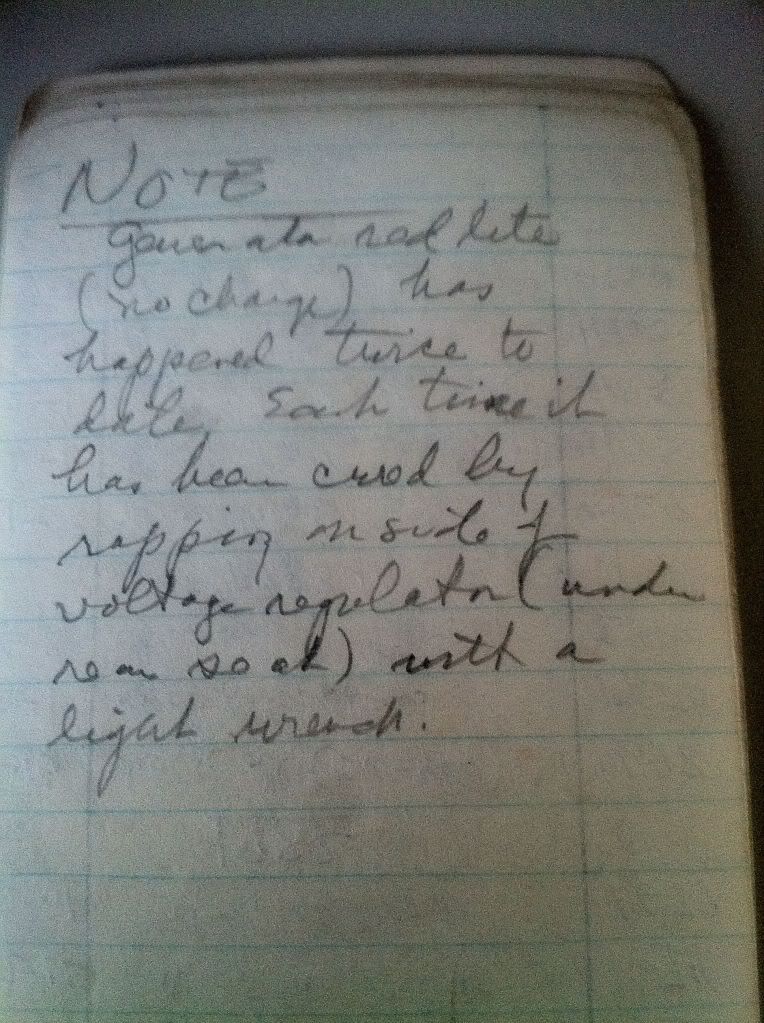 NOTE
Generator red lite
(no charge) has
happened twice to
date. Each time it
has been cured by
rapping on side of
voltage regulator (under
rear seat) with a
light wrench.